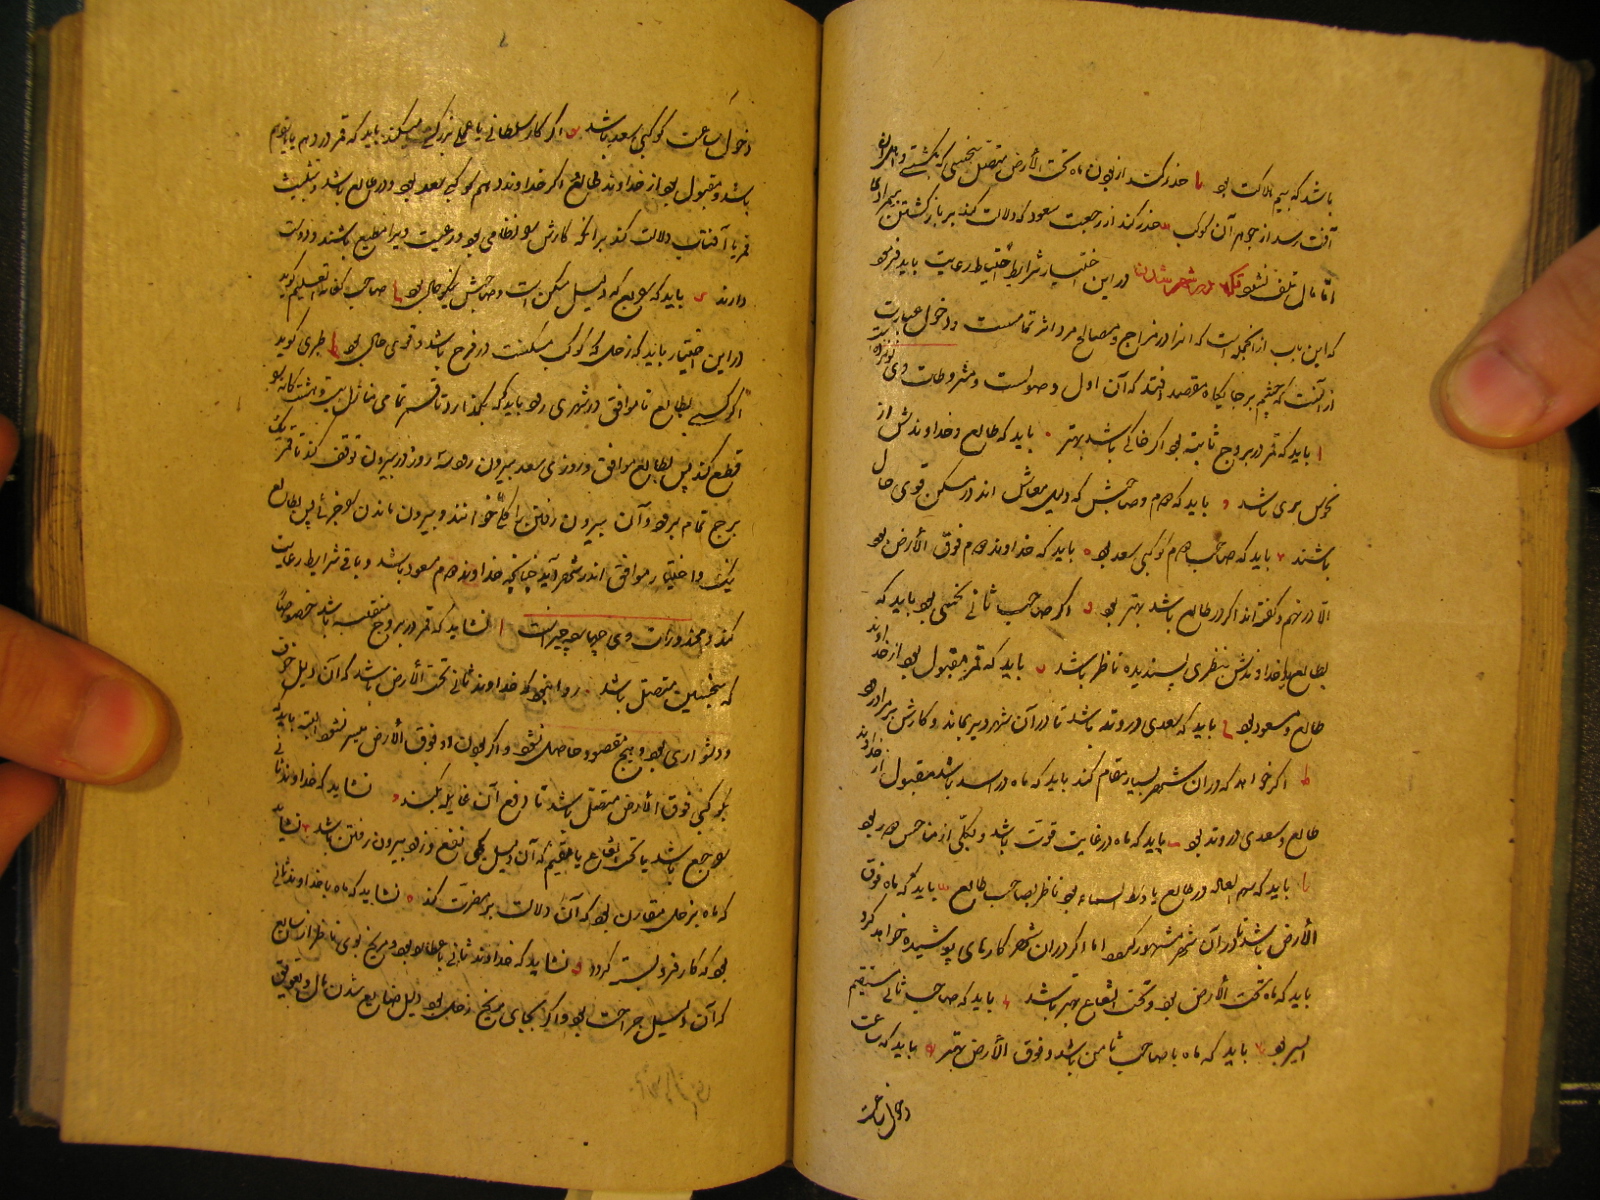 باشد که بیم هلاکت بود یا حذر کند از بودن ماه تحت الأرض متصل بنحسی که بکشتی و اهل او
آفت رسد از جوهر آن کوکب حذر کند از رجعت سعود که دلالت کند بر باز گشتن بیمرادی
اما مال تلف نشود در شهر شدن در این اختیار شرایط احتیاط رعایت باید فرمود
که این باب از آنجمله است که آنرا در مزاج و مصالح مرد اثر تمامست و دخول عبارت
از آنست که چشم بر جایگاه مقصد افتد که آن اول وصولست و مشروطات وی
ا باید که قمر در بروج ثابته بود اگر خاکی باشد بهتر باید که طالع و خداوندش از
نحوس بری باشد باید که دهم و صاحبش که دلیل معاش اند در مسکن قوی حال
باشند باید که صاحب دهم کوکبی سعد بود باید که خداوند دهم فوق الأرض بود
الا در نهم و گفته اند اگر در طالع باشد بهتر بود و اگر صاحب ثانی نحسی بود باید که
بطالع یا خداوندش بنظری پسندیده ناظر باشد باید که قمر مقبول بود از خداوند
طالع و مسعود بود باید که سعدی در وتد باشد تا در آن شهر دیر بماند و کارش بمراد رود
ط اگر خواهد که در آن شهر بسیار مقام کند باید که ماه در اسد باشد مقبول از خداوند
طالع و سعدی در وتد بود باید که ماه در غایت قوت باشد و بکلی از مناحس دور بود
یا باید که سهم السعاده در طالع یا وسط السماء بود ناظر بصاحب طالع باید که ماه فوق
الأرض باشد تا در آن شهر مشهور گردد اما اگر در آن شهر کارهای پوشیده خواهد کرد
باید که ماه تحت الأرض بود و تحت الشعاع بهتر باشد باید که صاحب ثانی مستقیم
السیر بود باید که ماه با صاحب ثامن باشد و فوق الأرض بهتر باید که ساعت
دخول ساعت
دخول ساعت کوکبی سعد باشد اگر کار سلطانی یا عملی بزرگ میکند باید که قمر در دهم یا یازدهم
باشد و مقبول بود از خداوند طالع اگر خداوند دهم کوکبی سعد بود و در طالع باشد و تثلیث
قمر با آفتاب دلالت کند بر آنکه کارش بر نظام بود و رعیت ویرا مطیع باشند و دوست
دارند باید که رابع که دلیل مسکن است و صاحبش نیکو حال بود صاحب کفایة التعلیم گوید
در این اختیار باید که زحل که کوکب مسکنست در فرح باشد و قوی حال بود طبری گوید
اگر کسی بطالع ناموافق در شهری رود باید که بگذارد تا قمر تمامی منازل بیست و هشت گانه
قطع کند پس بطالع موافق و روزی سعد بیرون رود سه روز در بیرون توقف کند تا قمر یک
برج تمام برود و آن بیرون رفتن را خوانند و بیرون ماندن پس بطالع
نیک و اختیار موافق اندر شهر آید چنانچه خداوند دهم مسعود باشد و باقی شرایط رعایت
کند و محذورات وی چهارده چیز است ا نشاید که قمر در بروج منقلبه باشد خصوصا
که بنحسین متصل باشد روا نبود که خداوند ثانی تحت الأرض باشد که آن دلیل خوف
و دشواری بود و هیچ مقصود حاصل نشود و اگر بودن او فوق الأرض میسر نشود البته باید که
بکوکبی فوق الأرض متصل باشد تا دفع آن غایله بکند نشاید که خداوند ثانی
راجع باشد یا تحت الشعاع یا مقیم که آن دلیل کمی نفع و زود بیرون رفتن باشد نشاید
که ماه بزحل مقارن بود که آن دلالت بر مضرت کند نشاید که ماه با خداوند ثانی
بود که کار فرو بسته گردد نشاید که خداوند ثانی با عطارد بود و مریخ بوی ناظر از سابع
که آن دلیل جراحت بود و اگر بجای مریخ زحل بود دلیل ضایع شدن مال و تعویق